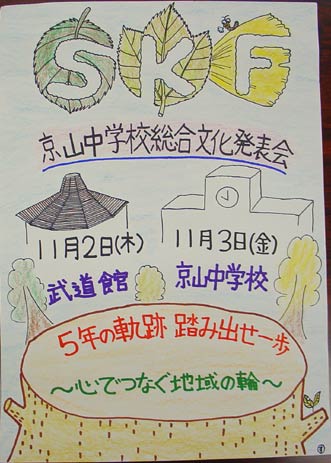 SKF
京山中学校総合文化発表会
11月2日(木) 11月3日(金)
武道館 京山中学校
5年の軌跡 踏み出せ一歩
～心でつなぐ地域の輪～